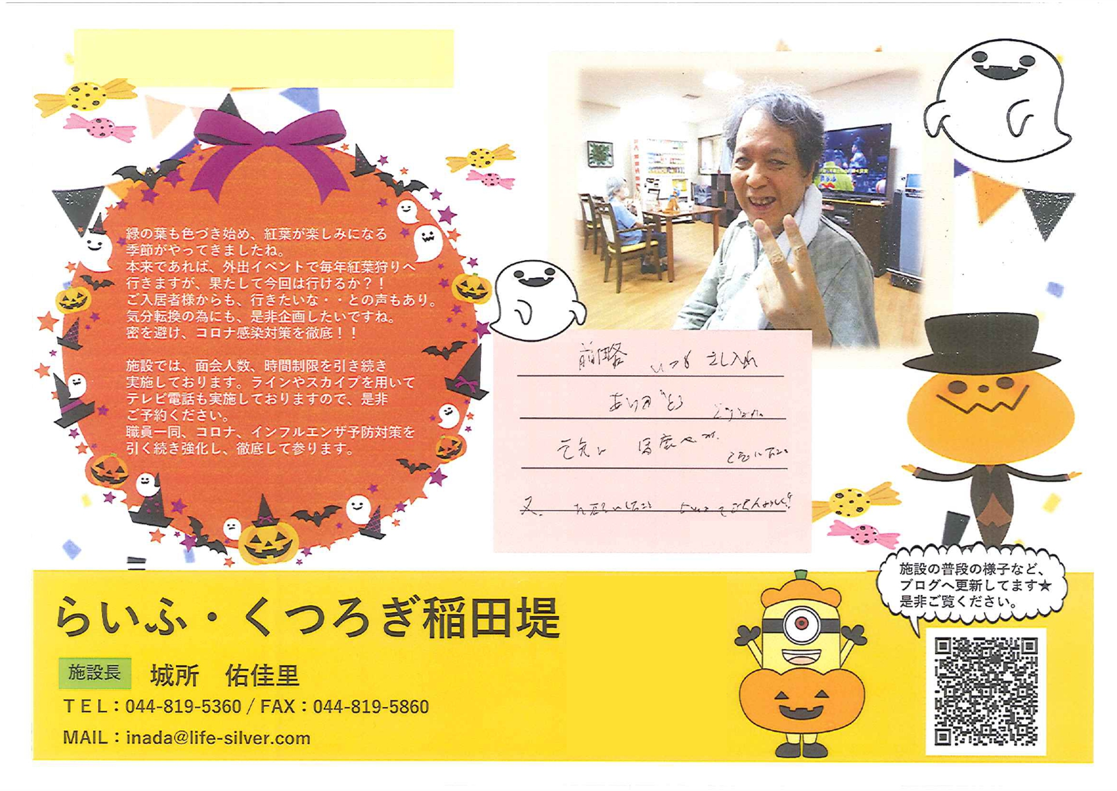 緑の葉も色づき始め、紅葉が楽しみになる
季節がやってきましたね。
本来であれば、外出イベントで毎年紅葉狩りへ
行きますが、果たして今回は行けるか？！
ご入居者様からも、行きたいな・・との声もあり。
気分転換の為にも、是非企画したいですね。
密を避け、コロナ感染対策を徹底！！
施設では、面会人数、時間制限を引き続き
実施しております。ラインやスカイプを用いて
テレビ電話も実施しておりますので、是非
ご予約ください。
職員一同、コロナ、インフルエンザ予防対策を
引く続き強化し、徹底して参ります。
前略 いつも 差し入れ
ありがとう
元気に
又、
らいふ・くつろぎ稲田堤
施設長 城所 佑佳里
ＴＥＬ：044-819-5360 / FAX：044-819-5860
MAIL：inada@life-silver.com
施設の普段の様子など、
ブログへ更新してます★
是非ご覧ください。